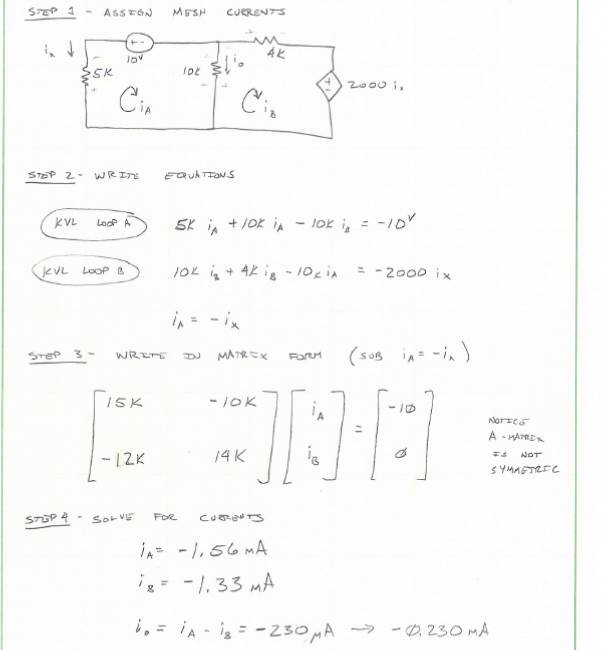 STEP 1 - ASSIGN MESH CURRENTS
ix
+-
10V
5K
+
iA
10K
io
4K
iB
+-
2000 ix
STEP 2 - WRITE EQUATIONS
KVL LOOP A 5K iA + 10K iA - 10K iB = -10V
KVL LOOP B 10K iB + 4K iB - 10K iA = -2000 ix
iA = -ix
STEP 3 - WRITE IN MATRIX FORM (SUB iA = -ix)
15K -10K iA = -10
-12K 14K iB 0
NOTICE
A-MATRIX
IS NOT
SYMMETRIC
STEP 4 - SOLVE FOR CURRENTS
iA = -1.56 mA
iB = -1.33 mA
io = iA - iB = -230 μA → -0.230 mA